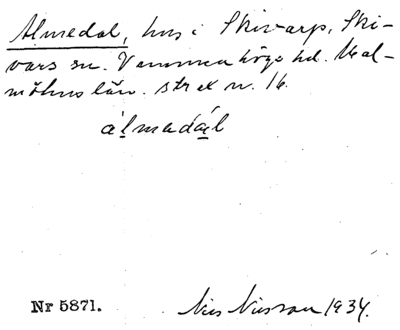 Almedal, hus i Skivarp, Ski-
vars sn. Vemmenhögs hd. Mal-
möhus län. str ex n. 16.
álmadál
Nr 5871. Nils Nilsson 1934.